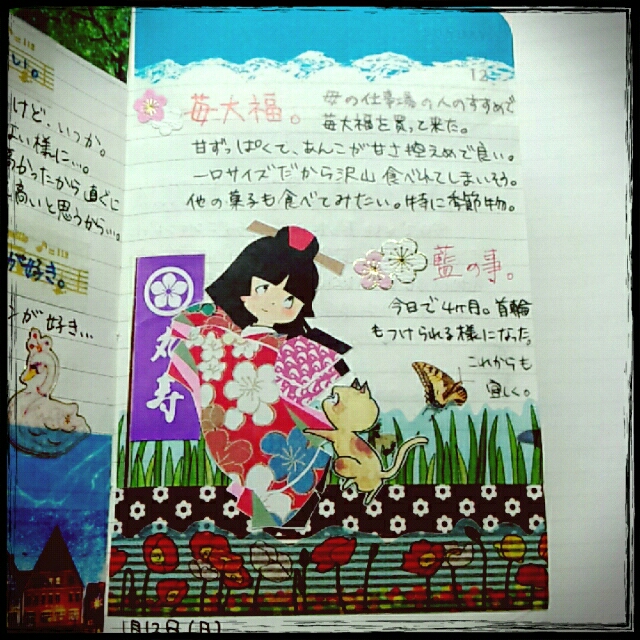 いけど、いつか。
よい様に…。
高かったから直ぐに
高いと思うから…。
が好き。
が好き…
12
苺大福。
母の仕事場の人のすすめで
苺大福を買って来た。
甘ずっぱくて、あんこが甘さ控えめで良い。
一口サイズだから沢山食べれてしまいそう。
他の菓子も食べてみたい。特に季節物。
藍の事。
今日で4ヶ月。首輪
もつけられる様になった。
これからも
宜しく。
丸寿
1月12日(月)